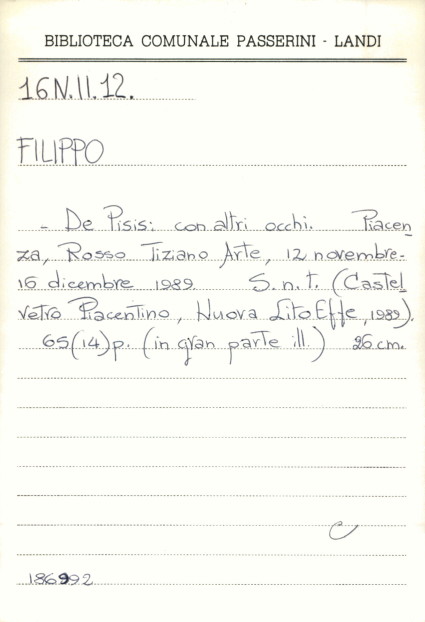 BIBLIOTECA COMUNALE PASSERINI - LANDI
16N.II.12.
FILIPPO
- De Pisis: con altri occhi. Piacen
za, Rosso Tiziano Arte, 12 novembre-
16 dicembre 1989. S.n.t. (Castel
vetro Piacentino, Nuova Lito Effe, 1989).
65(14)p. (in gran parte ill.) 26 cm.
C
186992